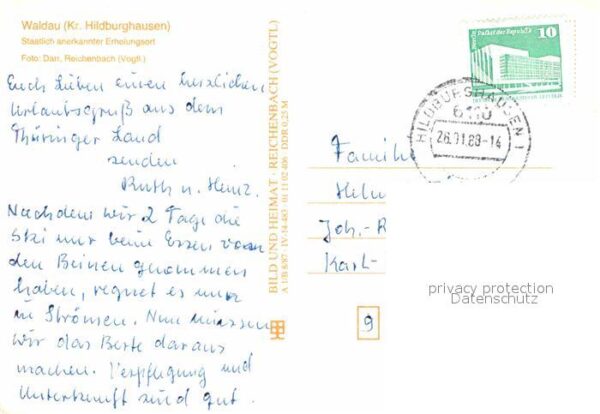 Waldau (Kr. Hildburghausen)
Staatlich anerkannter Erholungsort
Foto: Darr, Reichenbach (Vogtl.)
Euch Lieben einen herzlichen
Urlaubsgruß aus dem
Thüringer Land
senden
Ruth u. Heinz.
Nachdem wir 2 Tage die
Ski nur beim Essen von
den Beinen genommen
haben, regnet es nur
in Strömen. Nun müssen
wir das Beste daraus
machen. Verpflegung und
Unterkunft sind gut.
BILD UND HEIMAT · REICHENBACH (VOGTL)
A 1/B 8/87 IV-14-483 01 11 02 406 DDR 0,25 M
Palast der Republik
10
HILDBURGHAUSEN 1
6110
26.01.88-14
Familie
Helm
Joh.-R
Karl-
9
privacy protection
Datenschutz